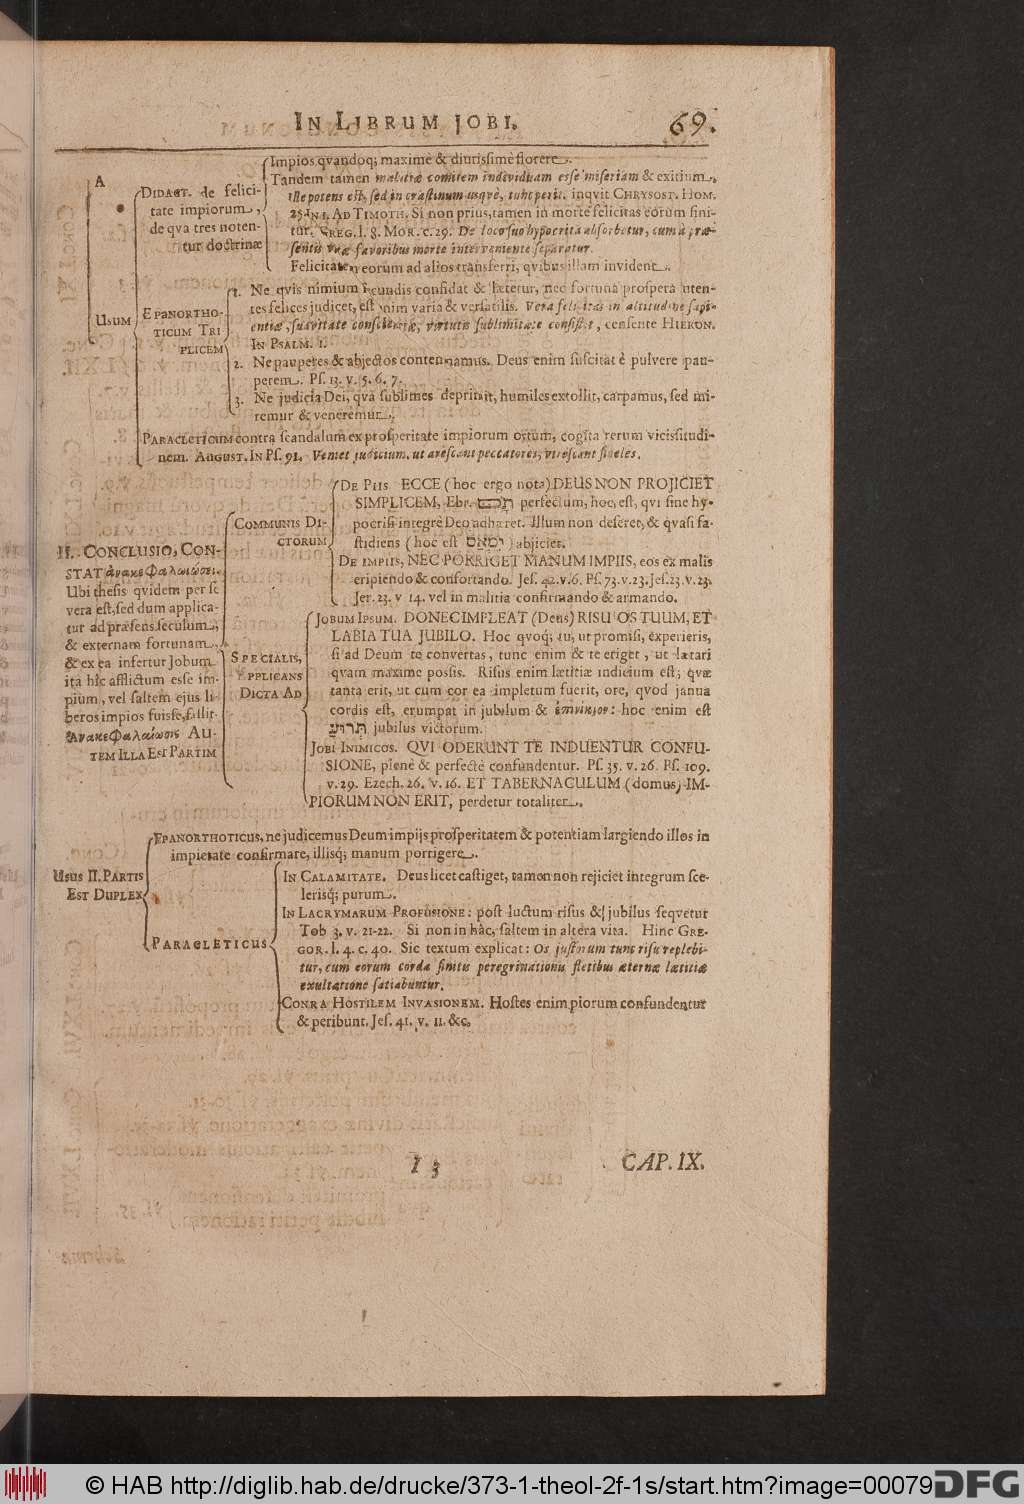 IN LIBRUM JOBI.
69.
A
Impios qvandoq; maxime & diutissimè florere.
Tandem tamen malitiæ comitem individuam esse miseriam & exitium.
Ille potens est, sed in crastinum usqvè, tunc perit. inqvit CHRYSOST. HOM.
25. IN 1. AD TIMOTH. Si non prius, tamen in morte felicitas eorum fini-
tur. GREG. l. 8. MOR. c. 29. De loco suo hypocrita absorbetur, cum à præ-
sentis vitæ favoribus morte interveniente separatur.
Felicitatem eorum ad alios transferri, qvibus illam invident.
DIDACT. de felici-
tate impiorum,
de qva tres noten-
tur doctrinæ
USUM
EPANORTHO-
TICUM TRI
PLICEM
1. Ne qvis nimium secundis confidat & lætetur, nec fortuna prospera uten-
tes felices judicet, est enim varia & versatilis. Vera felicitas in altitudine sapi-
entiæ, suavitate conscientiæ, virtutis sublimitate consistit, censente HIERON.
IN PSALM. 1.
2. Ne pauperes & abjectos contemnamus. Deus enim suscitat è pulvere pau-
perem. Ps. 13. v. 5. 6. 7.
3. Ne judicia Dei, qva sublimes deprimit, humiles extollit, carpamus, sed mi-
remur & veneremur.
PARACLETICUM contra scandalum ex prosperitate impiorum ortum, cogita rerum vicissitudi-
nem. AUGUST. IN Ps. 91. Veniet judicium, ut arescant peccatores, virescant fideles.
II. CONCLUSIO, CON-
STAT ἀνακεφαλαιώσει.
Ubi thesis qvidem per se
vera est, sed dum applica-
tur ad præsens seculum,
& externam fortunam,
& ex ea infertur Jobum
ita hîc afflictum esse im-
pium, vel saltem ejus li-
beros impios fuisse, fallit.
Ἀνακεφαλαίωσις AU-
TEM ILLA EST PARTIM
COMMUNIS DI-
CTORUM
DE PIIS ECCE (hoc ergo nota) DEUS NON PROJICIET
SIMPLICEM, Ebr. תם perfectum, hoc, est, qvi sine hy-
pocrisi integrè Deo adhæret. Illum non deseret, & qvasi fa-
stidiens (hoc est ימאס) abjiciet.
DE IMPIIS, NEC PORRIGET MANUM IMPIIS, eos ex malis
eripiendo & confortando. Jes. 42. v. 6. Ps. 73. v. 23. Jes. 23. v. 23.
Jer. 23. v 14. vel in malitia confirmando & armando.
SPECIALIS,
APPLICANS
DICTA AD
JOBUM IPSUM. DONEC IMPLEAT (Deus) RISU OS TUUM, ET
LABIA TUA JUBILO. Hoc qvoq; tu, ut promisi, experieris,
si ad Deum te convertas, tunc enim & te eriget, ut lætari
qvam maxime possis. Risus enim lætitiæ indicium est; qvæ
tanta erit, ut cum cor ea impletum fuerit, ore, qvod janua
cordis est, erumpat in jubilum & ἐπινίκιον: hoc enim est
תרועה jubilus victorum.
JOBI INIMICOS. QVI ODERUNT TE INDUENTUR CONFU-
SIONE, plenè & perfectè confundentur. Ps. 35. v. 26. Ps. 109.
v. 29. Ezech. 26. v. 16. ET TABERNACULUM (domus) IM-
PIORUM NON ERIT, perdetur totaliter.
USUS II. PARTIS
EST DUPLEX
EPANORTHOTICUS, ne judicemus Deum impijs prosperitatem & potentiam largiendo illos in
impietate confirmare, illisq; manum porrigere.
PARACLETICUS
IN CALAMITATE. Deus licet castiget, tamen non rejiciet integrum sce-
lerisq; purum.
IN LACRYMARUM PROFUSIONE: post luctum risus & jubilus seqvetur
Tob 3. v. 21-22. Si non in hâc, saltem in altera vita. Hinc GRE-
GOR. l. 4. c. 40. Sic textum explicat: Os justorum tunc risu replebi-
tur, cum eorum corda finitis peregrinationis fletibus æternæ lætitiæ
exultatione satiabuntur.
CONRA HOSTILEM INVASIONEM. Hostes enim piorum confundentur
& peribunt. Jes. 41. v. 11. &c.
I 3
CAP. IX.
© HAB http://diglib.hab.de/drucke/373-1-theol-2f-1s/start.htm?image=00079
DFG